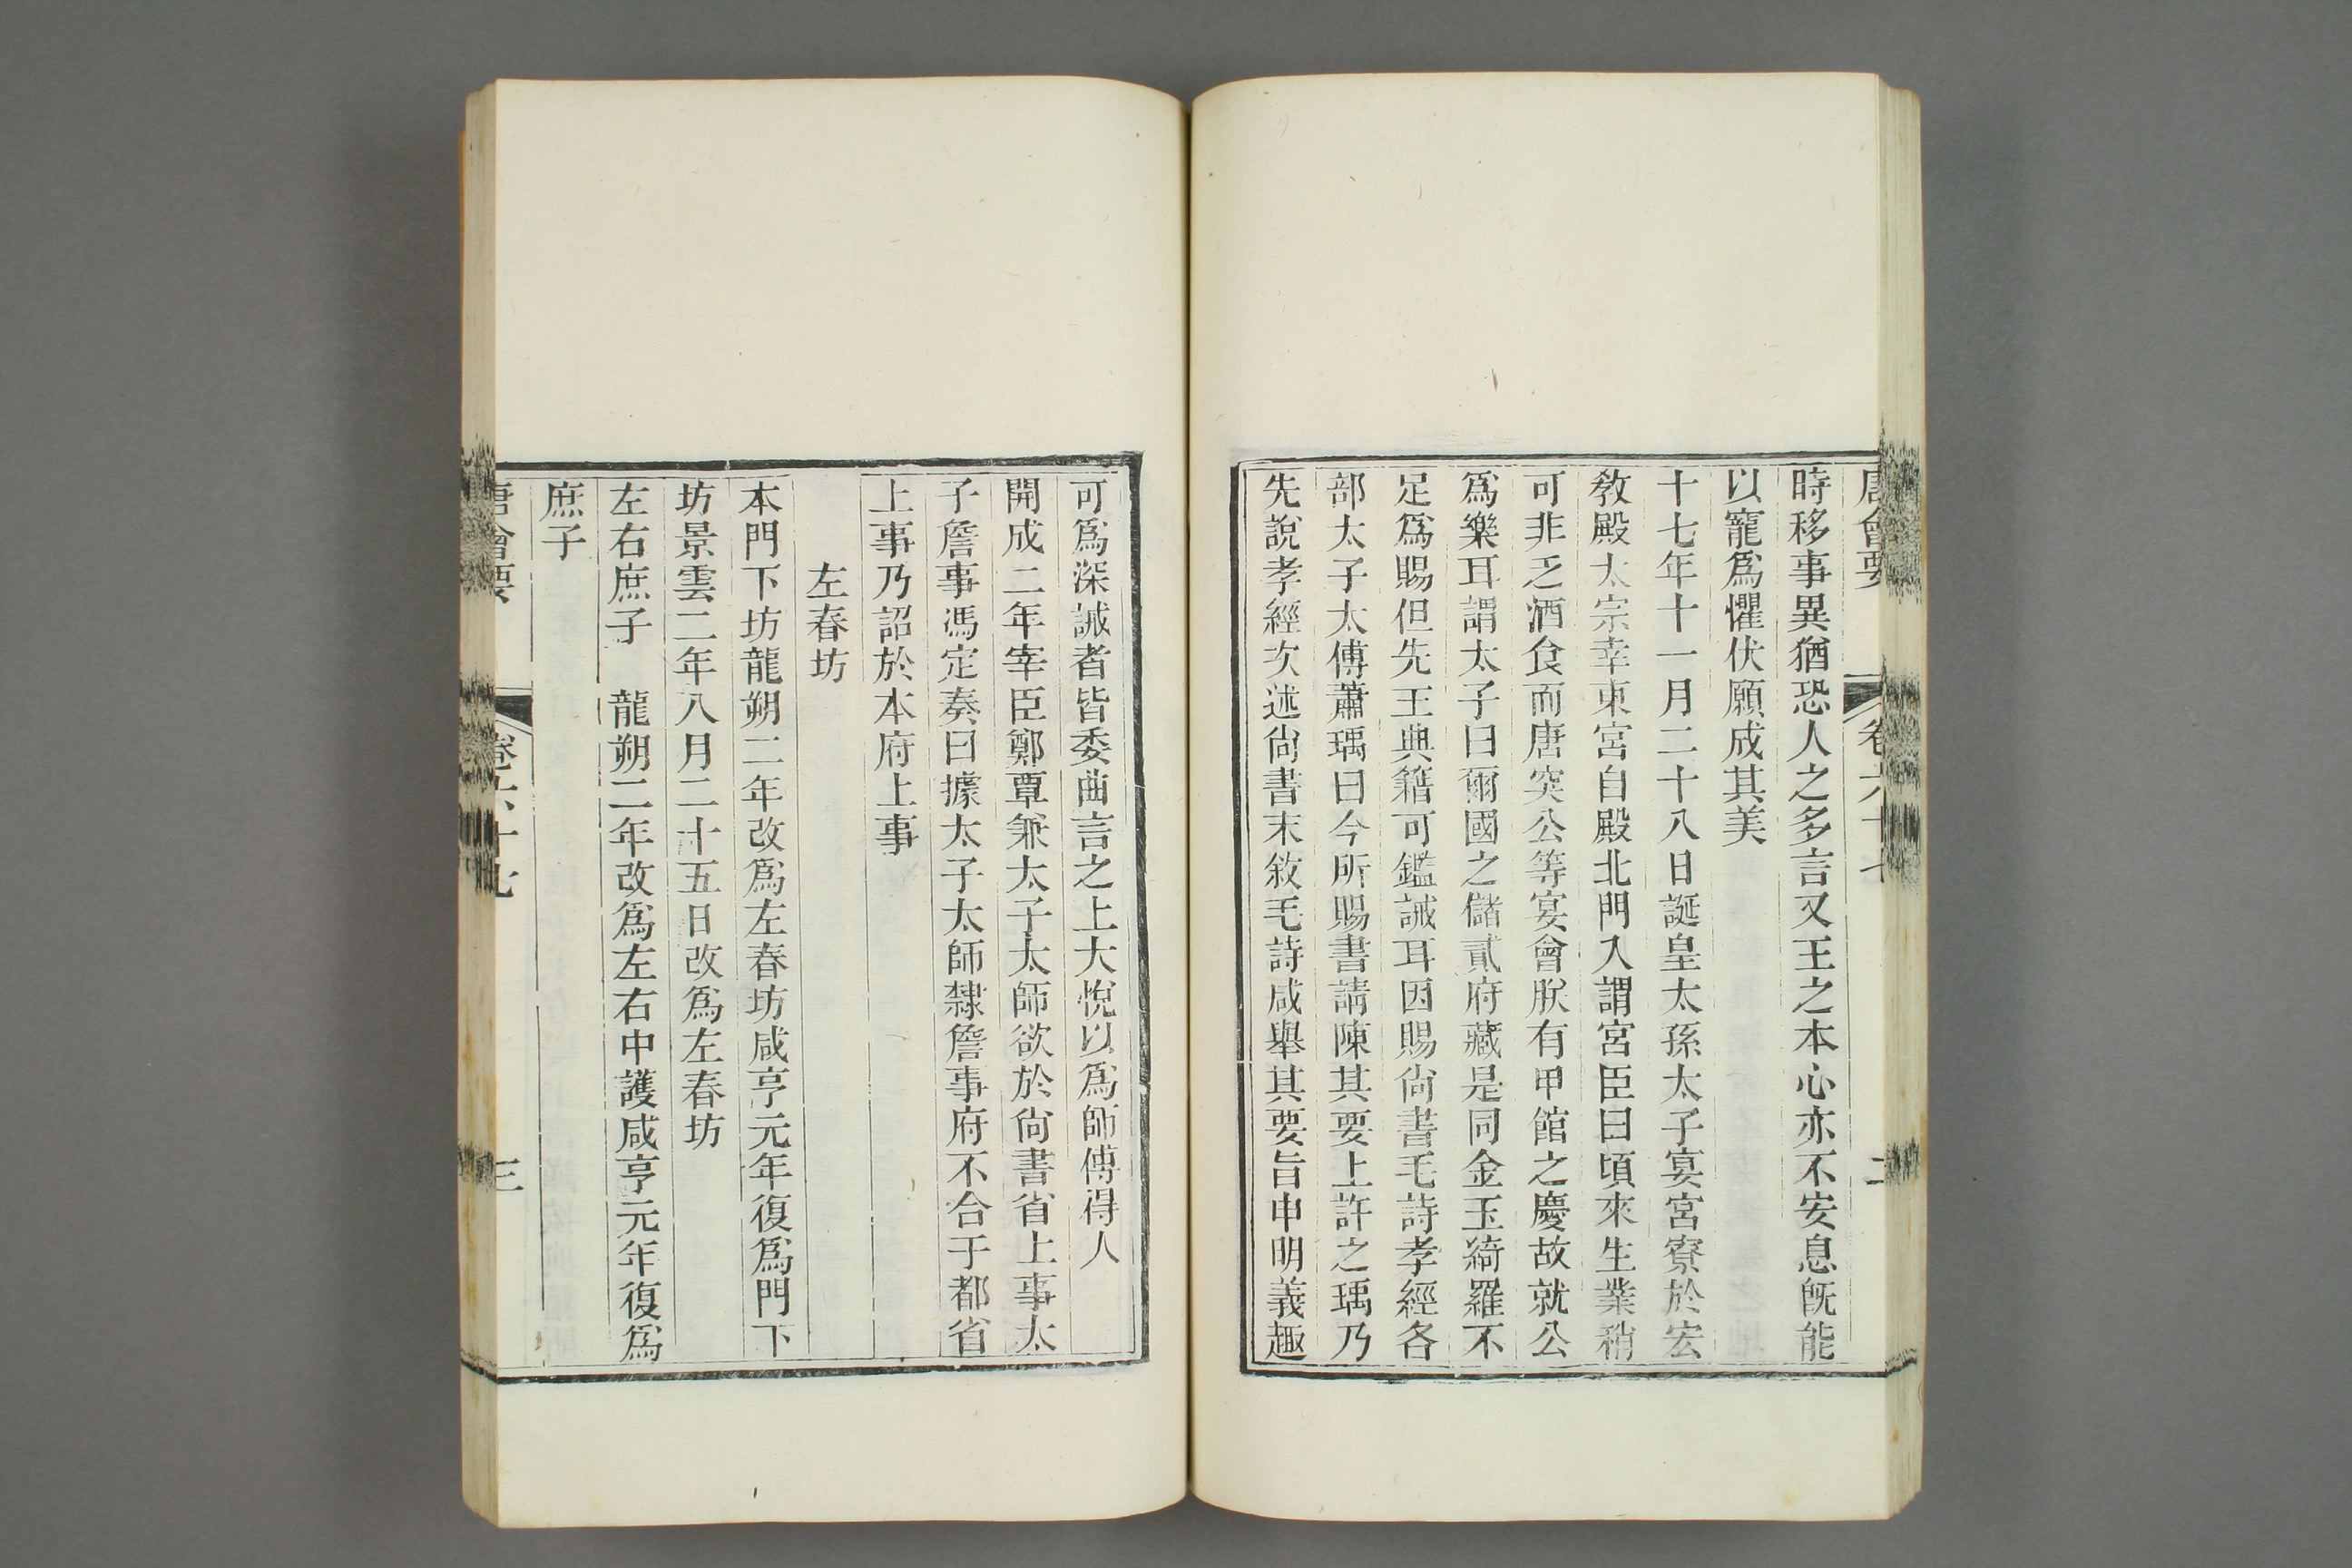 唐會要 卷六十七 二
時移事異猶恐人之多言又王之本心亦不安息旣能
以寵爲懼伏願成其美
十七年十一月二十八日誕皇太孫太子宴宮寮於宏
敎殿太宗幸東宮自殿北門入謂宮臣曰頃來生業稍
可非乏酒食而唐突公等宴會朕有甲館之慶故就公
爲樂耳謂太子曰爾國之儲貳府藏是同金玉綺羅不
足爲賜但先王典籍可鑑誡耳因賜尙書毛詩孝經各
部太子太傅蕭瑀曰今所賜書請陳其要上許之瑀乃
先說孝經次述尙書末敘毛詩咸舉其要旨申明義趣
可爲深誡者皆委曲言之上大悅以爲師傅得人
開成二年宰臣鄭覃兼太子太師欲於尙書省上事太
子詹事馮定奏曰據太子太師隸詹事府不合于都省
上事乃詔於本府上事
左春坊
本門下坊龍朔二年改爲左春坊咸亨元年復爲門下
坊景雲二年八月二十五日改爲左春坊
左右庶子 龍朔二年改爲左右中護咸亨元年復爲
庶子
唐會要 卷六十七 三